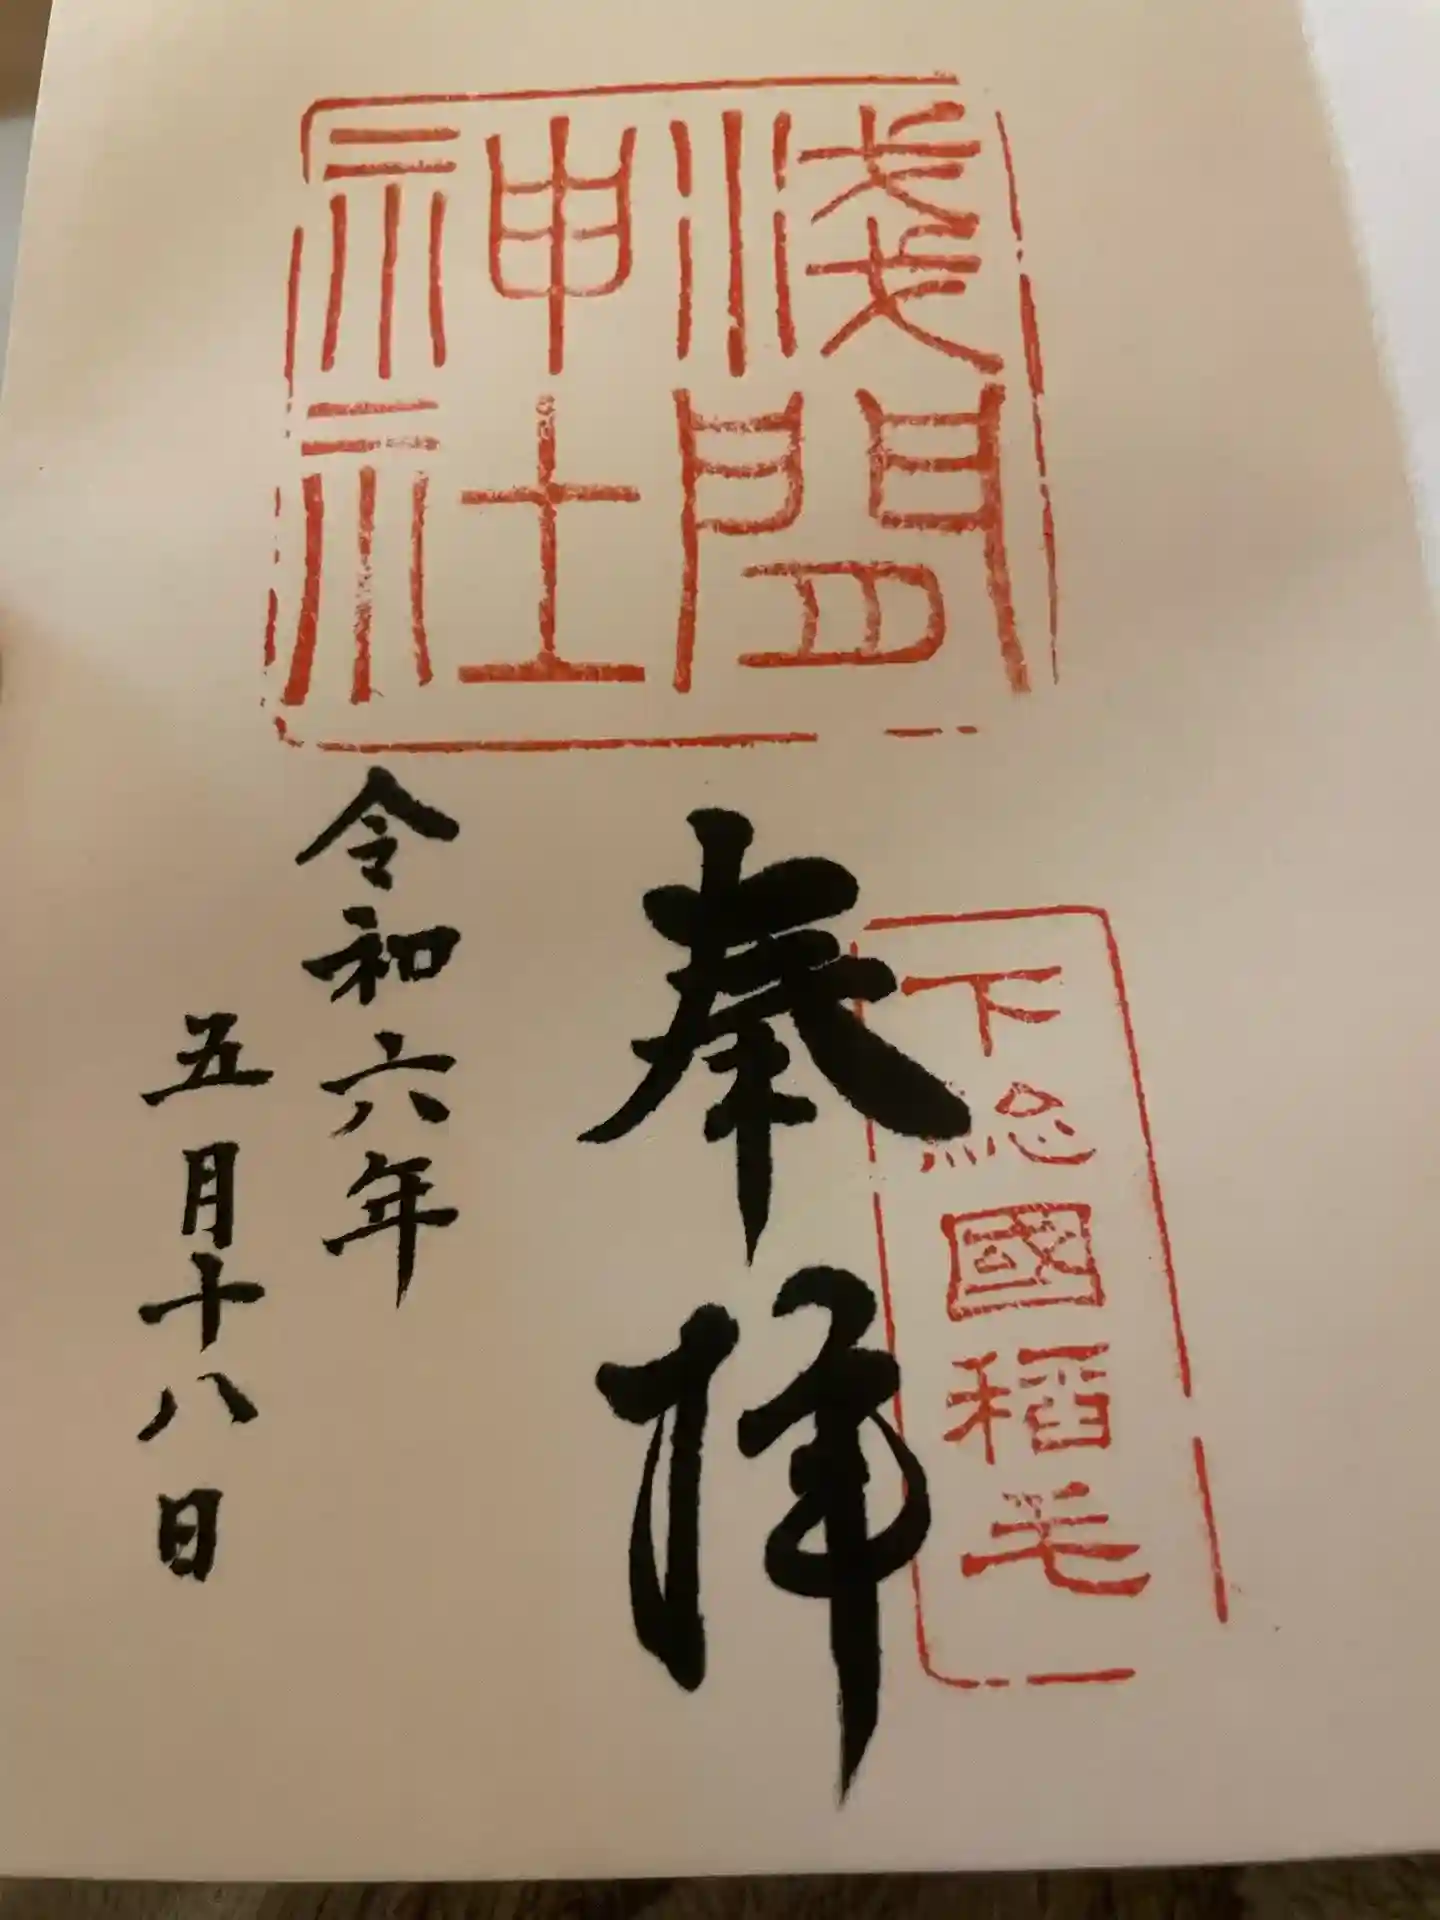 淺間
神社
奉拝
下総國稻毛
令和六年
五月十八日